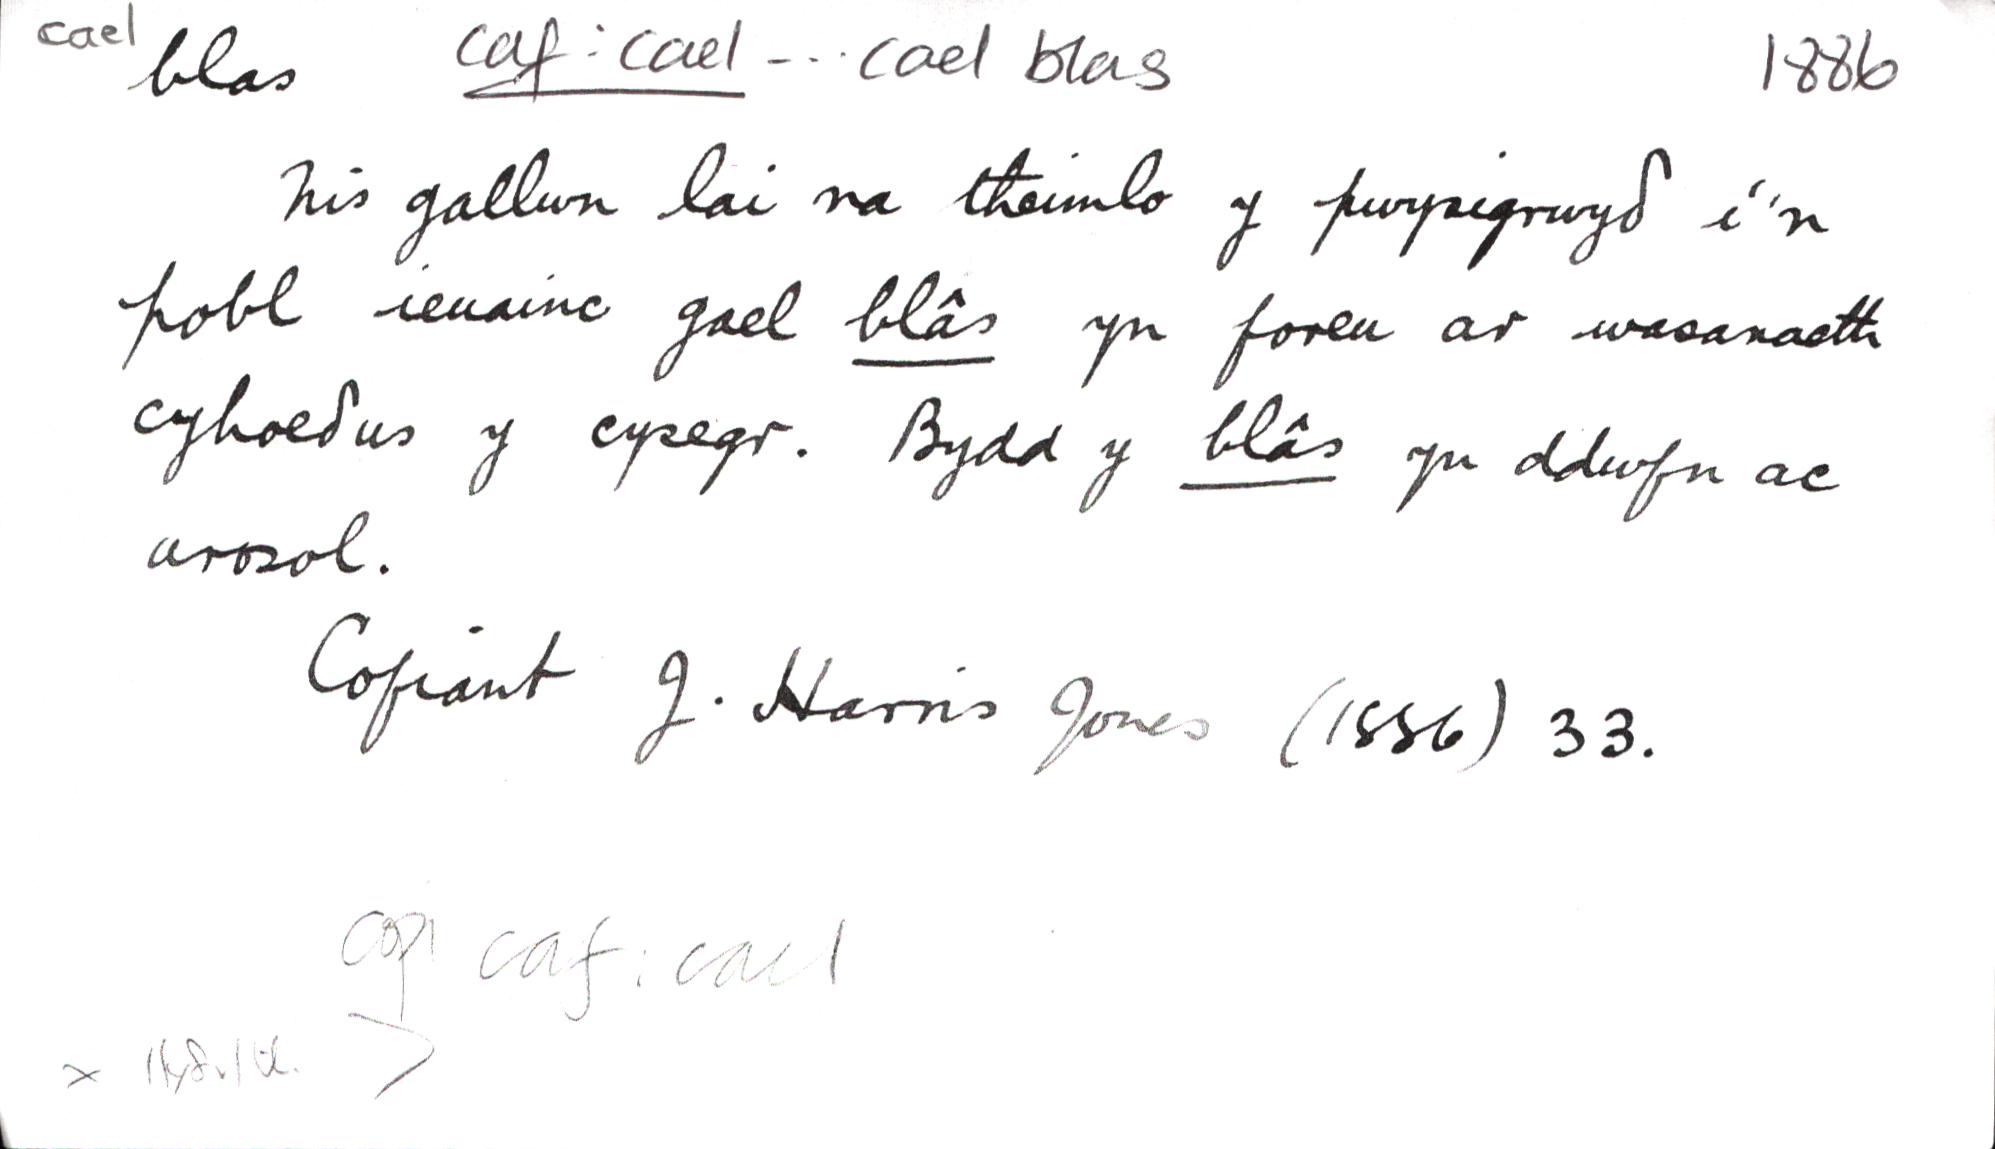 cael blas caf : cael --- cael blas 1886
Nis gallwn lai na theimlo y pwysigrwyδ i'n
pobl ieuainc gael blâs yn foreu ar wasanaeth
cyhoeδus y cysegr. Bydd y blâs yn ddwfn ac
arosol.
Cofiant J. Harris Jones (1886) 33.
copi caf : cael
x